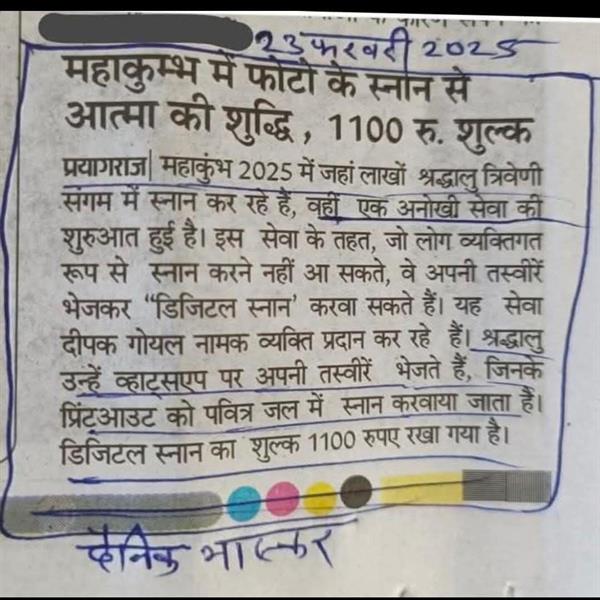 23 फरवरी 2025
महाकुम्भ में फोटो के स्नान से
आत्मा की शुद्धि , 1100 रु. शुल्क
प्रयागराज| महाकुंभ 2025 में जहां लाखों श्रद्धालु त्रिवेणी
संगम में स्नान कर रहे हैं, वहीं एक अनोखी सेवा की
शुरुआत हुई है। इस सेवा के तहत, जो लोग व्यक्तिगत
रूप से स्नान करने नहीं आ सकते, वे अपनी तस्वीरें
भेजकर “डिजिटल स्नान’ करवा सकते हैं। यह सेवा
दीपक गोयल नामक व्यक्ति प्रदान कर रहे हैं। श्रद्धालु
उन्हें व्हाट्सएप पर अपनी तस्वीरें भेजते हैं, जिनके
प्रिंटआउट को पवित्र जल में स्नान करवाया जाता है।
डिजिटल स्नान का शुल्क 1100 रुपए रखा गया है।
दैनिक भास्कर